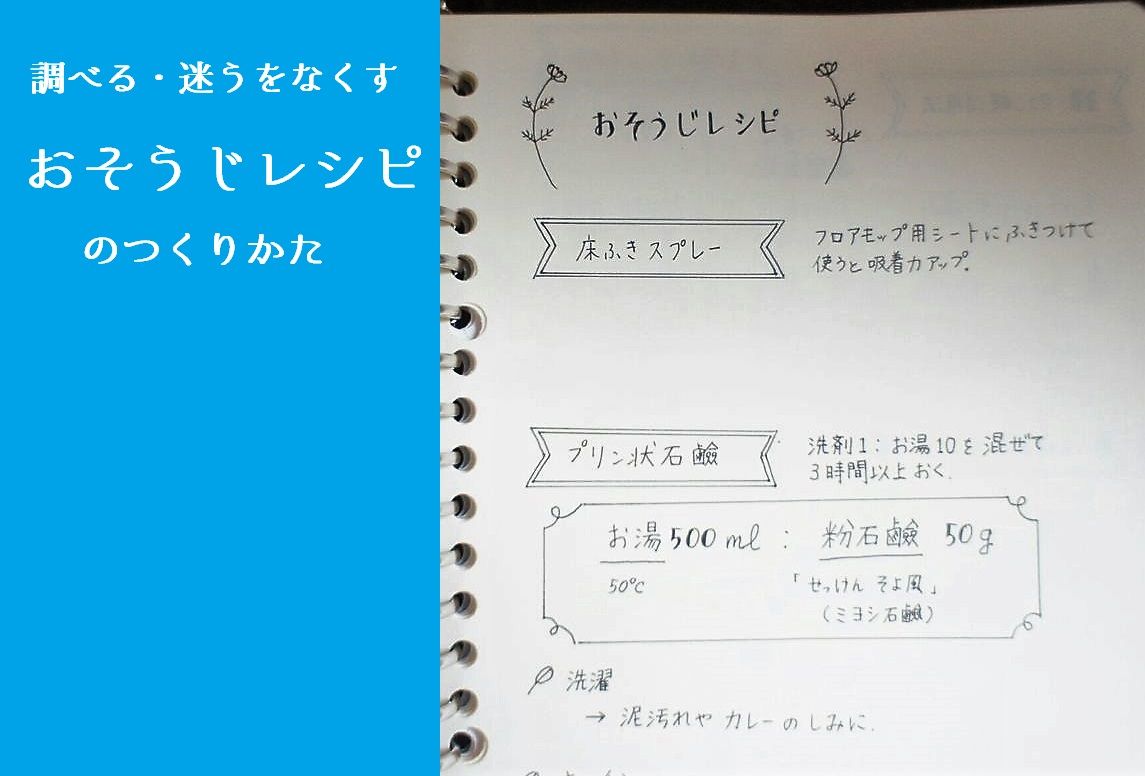 調べる・迷うをなくす
おそうじレシピ
のつくりかた
おそうじレシピ
床ふきスプレー
フロアモップ用シートにふきつけて
使うと吸着力アップ。
プリン状石鹸
洗剤1:お湯10を混ぜて
3時間以上おく.
お湯500ml : 粉石鹸 50g
50℃
「せっけん そよ風」
(ミヨシ石鹸)
洗濯
→ 泥汚れや カレーの しみに.